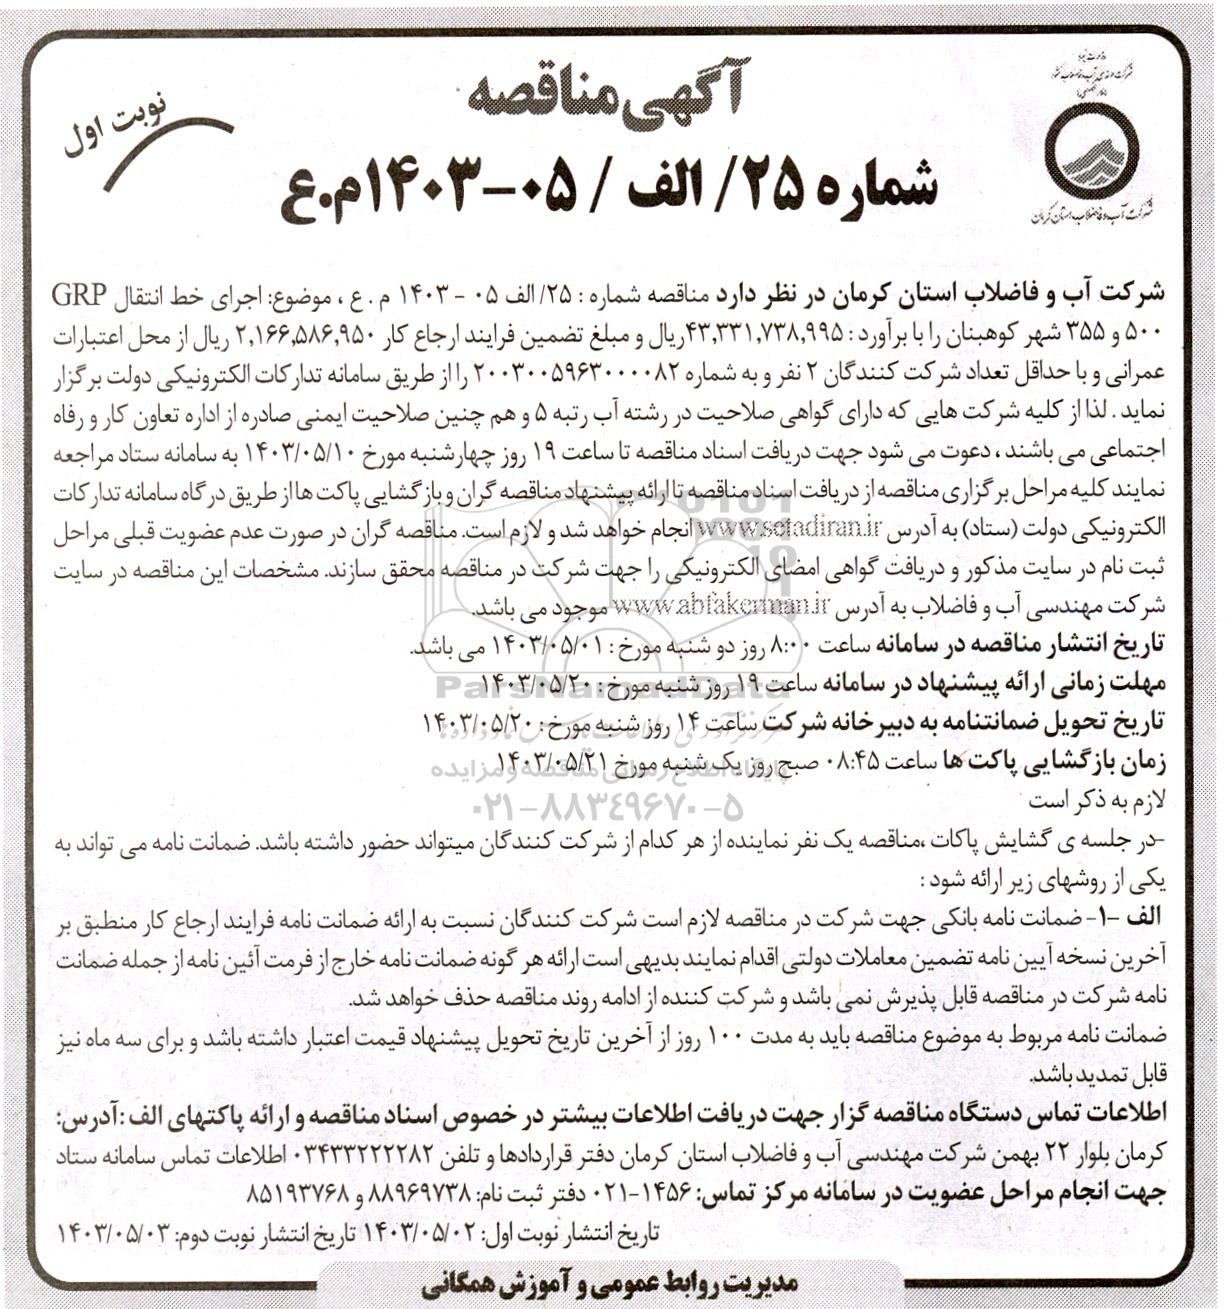 آگهی مناقصه
نوبت اول
شماره ۲۵/ الف / ۰۵-۱۴۰۳م.ع
شرکت آب و فاضلاب استان کرمان
شرکت آب و فاضلاب استان کرمان در نظر دارد مناقصه شماره : ۲۵/ الف ۰۵ - ۱۴۰۳ م . ع ، موضوع: اجرای خط انتقال GRP
۵۰۰ و ۳۵۵ شهر کوهبنان را با برآورد : ۴۳,۳۳۱,۷۳۸,۹۹۵ریال و مبلغ تضمین فرایند ارجاع کار ۲,۱۶۶,۵۸۶,۹۵۰ ریال از محل اعتبارات
عمرانی و با حداقل تعداد شرکت کنندگان ۲ نفر و به شماره ۲۰۰۳۰۰۵۹۶۳۰۰۰۰۸۲ را از طریق سامانه تدارکات الکترونیکی دولت برگزار
نماید . لذا از کلیه شرکت هایی که دارای گواهی صلاحیت در رشته آب رتبه ۵ و هم چنین صلاحیت ایمنی صادره از اداره تعاون کار و رفاه
اجتماعی می باشند ، دعوت می شود جهت دریافت اسناد مناقصه تا ساعت ۱۹ روز چهارشنبه مورخ ۱۴۰۳/۰۵/۱۰ به سامانه ستاد مراجعه
نمایند کلیه مراحل برگزاری مناقصه از دریافت اسناد مناقصه تا ارائه پیشنهاد مناقصه گران و بازگشایی پاکت ها از طریق درگاه سامانه تدارکات
الکترونیکی دولت (ستاد) به آدرس www.setadiran.ir انجام خواهد شد و لازم است. مناقصه گران در صورت عدم عضویت قبلی مراحل
ثبت نام در سایت مذکور و دریافت گواهی امضای الکترونیکی را جهت شرکت در مناقصه محقق سازند. مشخصات این مناقصه در سایت
شرکت مهندسی آب و فاضلاب به آدرس www.abfakerman.ir موجود می باشد.
تاریخ انتشار مناقصه در سامانه ساعت ۸:۰۰ روز دو شنبه مورخ : ۱۴۰۳/۰۵/۰۱ می باشد.
مهلت زمانی ارائه پیشنهاد در سامانه ساعت ۱۹ روز شنبه مورخ : ۱۴۰۳/۰۵/۲۰
ParsNamadData
تاریخ تحویل ضمانتنامه به دبیرخانه شرکت ساعت ۱۴ روز شنبه مورخ : ۱۴۰۳/۰۵/۲۰
زمان بازگشایی پاکت ها ساعت ۰۸:۴۵ صبح روز یک شنبه مورخ ۱۴۰۳/۰۵/۲۱
پایگاه اطلاع رسانی مناقصه و مزایده
لازم به ذکر است
۰۲۱-۸۸۳۴۹۶۷۰-۵
-در جلسه ی گشایش پاکات ،مناقصه یک نفر نماینده از هر کدام از شرکت کنندگان میتواند حضور داشته باشد. ضمانت نامه می تواند به
یکی از روشهای زیر ارائه شود :
الف -۱- ضمانت نامه بانکی جهت شرکت در مناقصه لازم است شرکت کنندگان نسبت به ارائه ضمانت نامه فرایند ارجاع کار منطبق بر
آخرین نسخه آیین نامه تضمین معاملات دولتی اقدام نمایند بدیهی است ارائه هر گونه ضمانت نامه خارج از فرمت آئین نامه از جمله ضمانت
نامه شرکت در مناقصه قابل پذیرش نمی باشد و شرکت کننده از ادامه روند مناقصه حذف خواهد شد.
ضمانت نامه مربوط به موضوع مناقصه باید به مدت ۱۰۰ روز از آخرین تاریخ تحویل پیشنهاد قیمت اعتبار داشته باشد و برای سه ماه نیز
قابل تمدید باشد.
اطلاعات تماس دستگاه مناقصه گزار جهت دریافت اطلاعات بیشتر در خصوص اسناد مناقصه و ارائه پاکتهای الف :آدرس:
کرمان بلوار ۲۲ بهمن شرکت مهندسی آب و فاضلاب استان کرمان دفتر قراردادها و تلفن ۰۳۴۳۳۲۲۲۲۸۲ اطلاعات تماس سامانه ستاد
جهت انجام مراحل عضویت در سامانه مرکز تماس: ۱۴۵۶-۰۲۱ دفتر ثبت نام: ۸۸۹۶۹۷۳۸ و ۸۵۱۹۳۷۶۸
تاریخ انتشار نوبت اول: ۱۴۰۳/۰۵/۰۲ تاریخ انتشار نوبت دوم: ۱۴۰۳/۰۵/۰۳
مدیریت روابط عمومی و آموزش همگانی